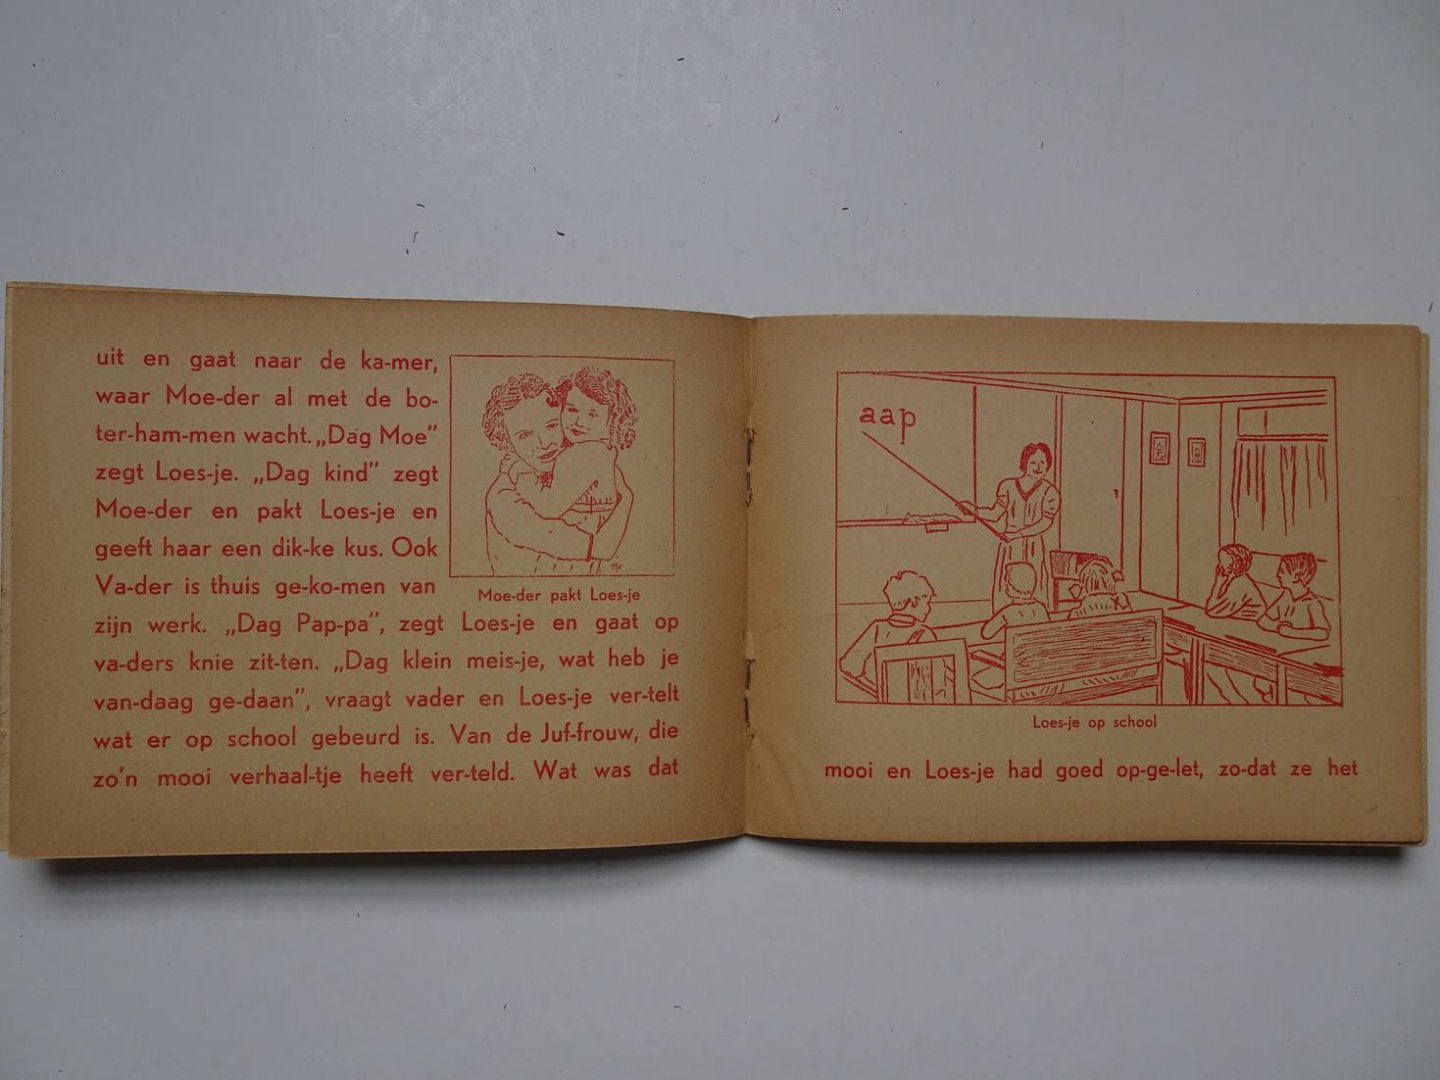 uit en gaat naar de ka-mer,
waar Moe-der al met de bo-
ter-ham-men wacht. „Dag Moe”
zegt Loes-je. „Dag kind” zegt
Moe-der en pakt Loes-je en
geeft haar een dik-ke kus. Ook
Va-der is thuis ge-ko-men van
Moe-der pakt Loes-je
zijn werk. „Dag Pap-pa”, zegt Loes-je en gaat op
va-ders knie zit-ten. „Dag klein meis-je, wat heb je
van-daag ge-daan”, vraagt vader en Loes-je ver-telt
wat er op school gebeurd is. Van de Juf-frouw, die
zo'n mooi verhaal-tje heeft ver-teld. Wat was dat
aap
Loes-je op school
mooi en Loes-je had goed op-ge-let, zo-dat ze het